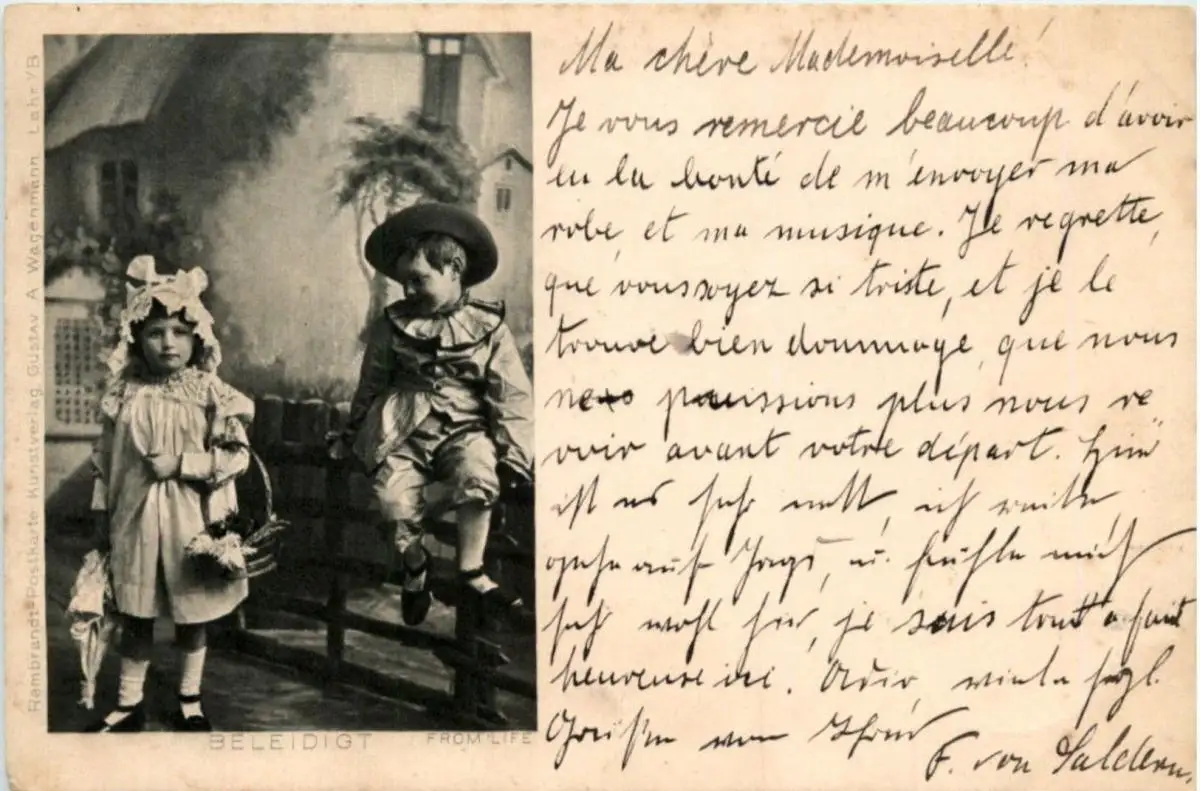 Rambrandt-Postkarte Kunstverlag Gustav A Wagenmann Lahr 'YB
BELEIDIGT
FROM LIFE
Ma chère Mademoiselle!
Je vous remercie beaucoup d'avoir
eu la bonté de m'envoyer ma
robe, et ma musique. Je regrette,
que vous soyez si triste, et je le
trouve bien doummage, que nous
puissions plus nous re
voir avant votre départ. Hier
ist es sehr nett, ich reite,
gehe auf Jagd, u. fühle mich
sehr wohl hier, je suis tout à fait
heureuse ici. Adio, viele herzl.
Grüße von Ihrer
F. von Saldern.